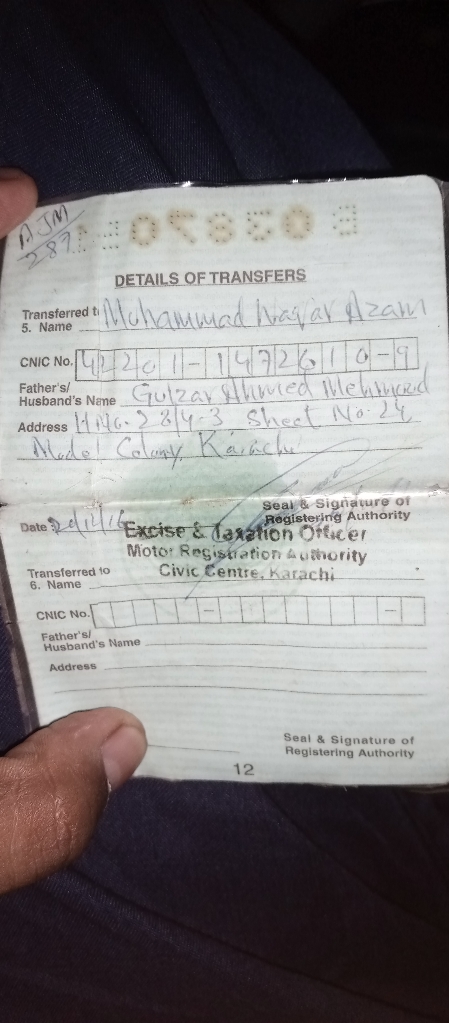 AJM
287
DETAILS OF TRANSFERS
Transferred to
5. Name Muhammad Waqar Azam
CNIC No. 42201-1472610-9
Father's/
Husband's Name Gulzar Ahmed Mehmood
Address H.No. 28/4-3, Sheet No. 24,
Model Colony, Karachi
Seal & Signature of
Registering Authority
Date
Excise & Taxation Officer
Motor Registration Authority
Civic Centre, Karachi
Transferred to
6. Name
CNIC No.
Father's/
Husband's Name
Address
Seal & Signature of
Registering Authority
12